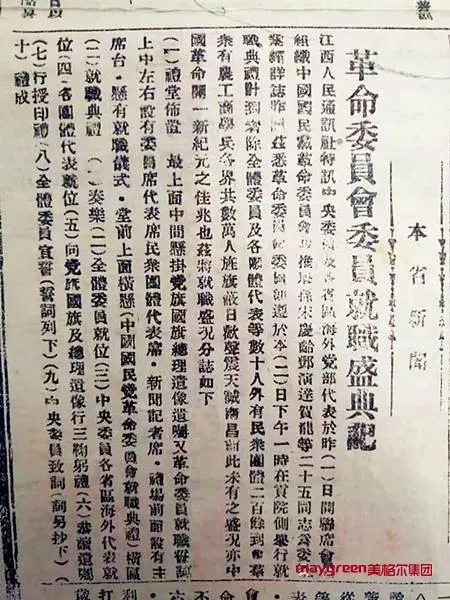 本省新聞
革命委員會委員就職盛典記
江西人民通訊社特訊中央委員及各省區海外党部代表於昨(一)日開聯席會
組織中國國民党革命委員會 推 宋慶齡鄧演達賀龍等二十五同志為委
業經詳誌昨 茲悉革命委員會委員 遵於本(二)日下午一時在貢院側舉行就
職典禮計到者除全體委員及各團體代表等數十人外有民衆團體二百餘到會羣
衆有農工商學兵各界共數萬人旌旗蔽日 聲震天誠南昌 此未有之盛况亦中
國革命開一新紀元之佳兆也茲將就職盛况分誌如下
(一)禮堂佈置 最上面中間懸掛党旗國旗總理遺像遺囑又革命委員就職誓詞
上中左右設有委員席代表席民衆團體代表席·新聞記者席·禮場前面設有主
席台·懸有就職儀式·堂前上面橫懸(中國國民党革命委員會就職典禮)橫匾
(二)就職典禮 (一)奏樂(二)全體委員就位(三)中央委員各省區海外代表就
位(四)各團體代表就位(五)向党旗國旗及總理遺像行三鞠躬禮(六)恭讀遺囑
(七)行授印禮(八)全體委員宣誓(誓詞列下)(九)中央委員致詞(詞另抄下)(
十)禮成
maygreen美格尔集团